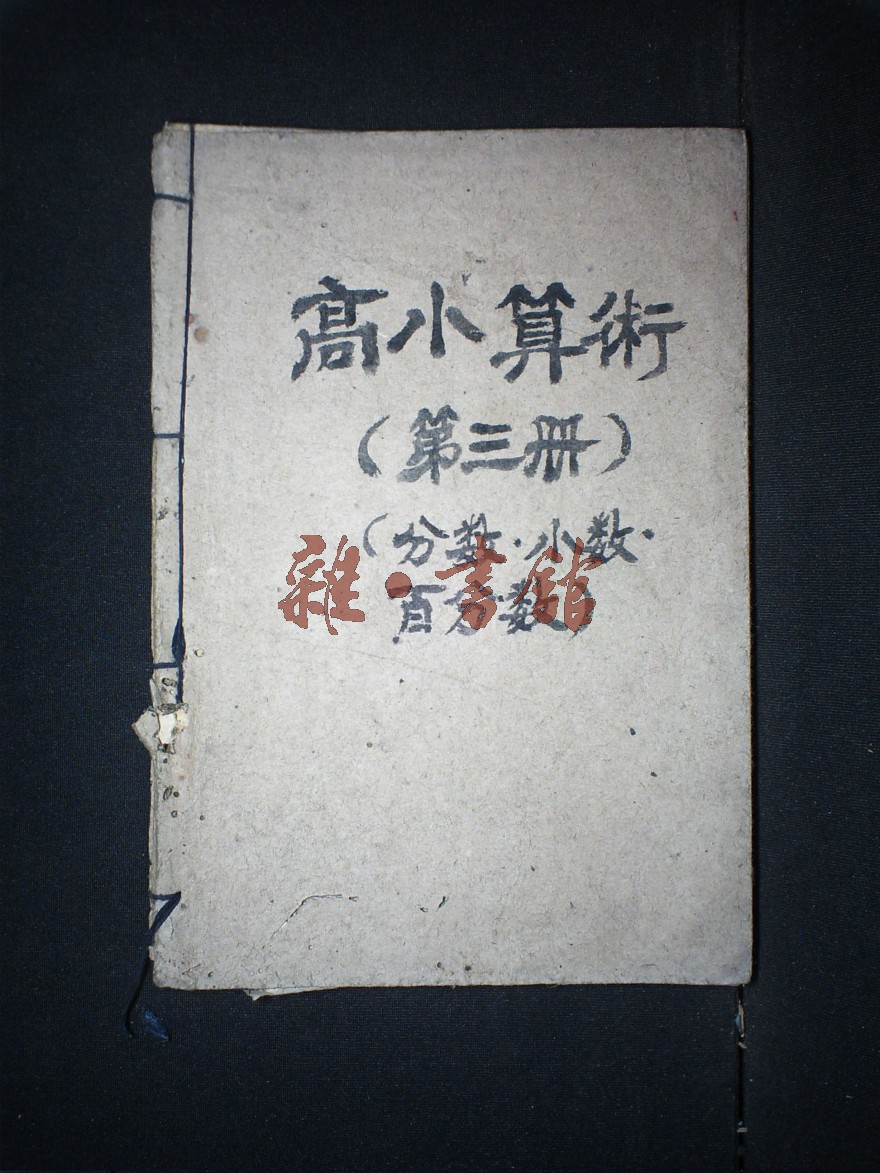 高小算術
(第三册)
(分数·小数·
百分数)
雜·書館